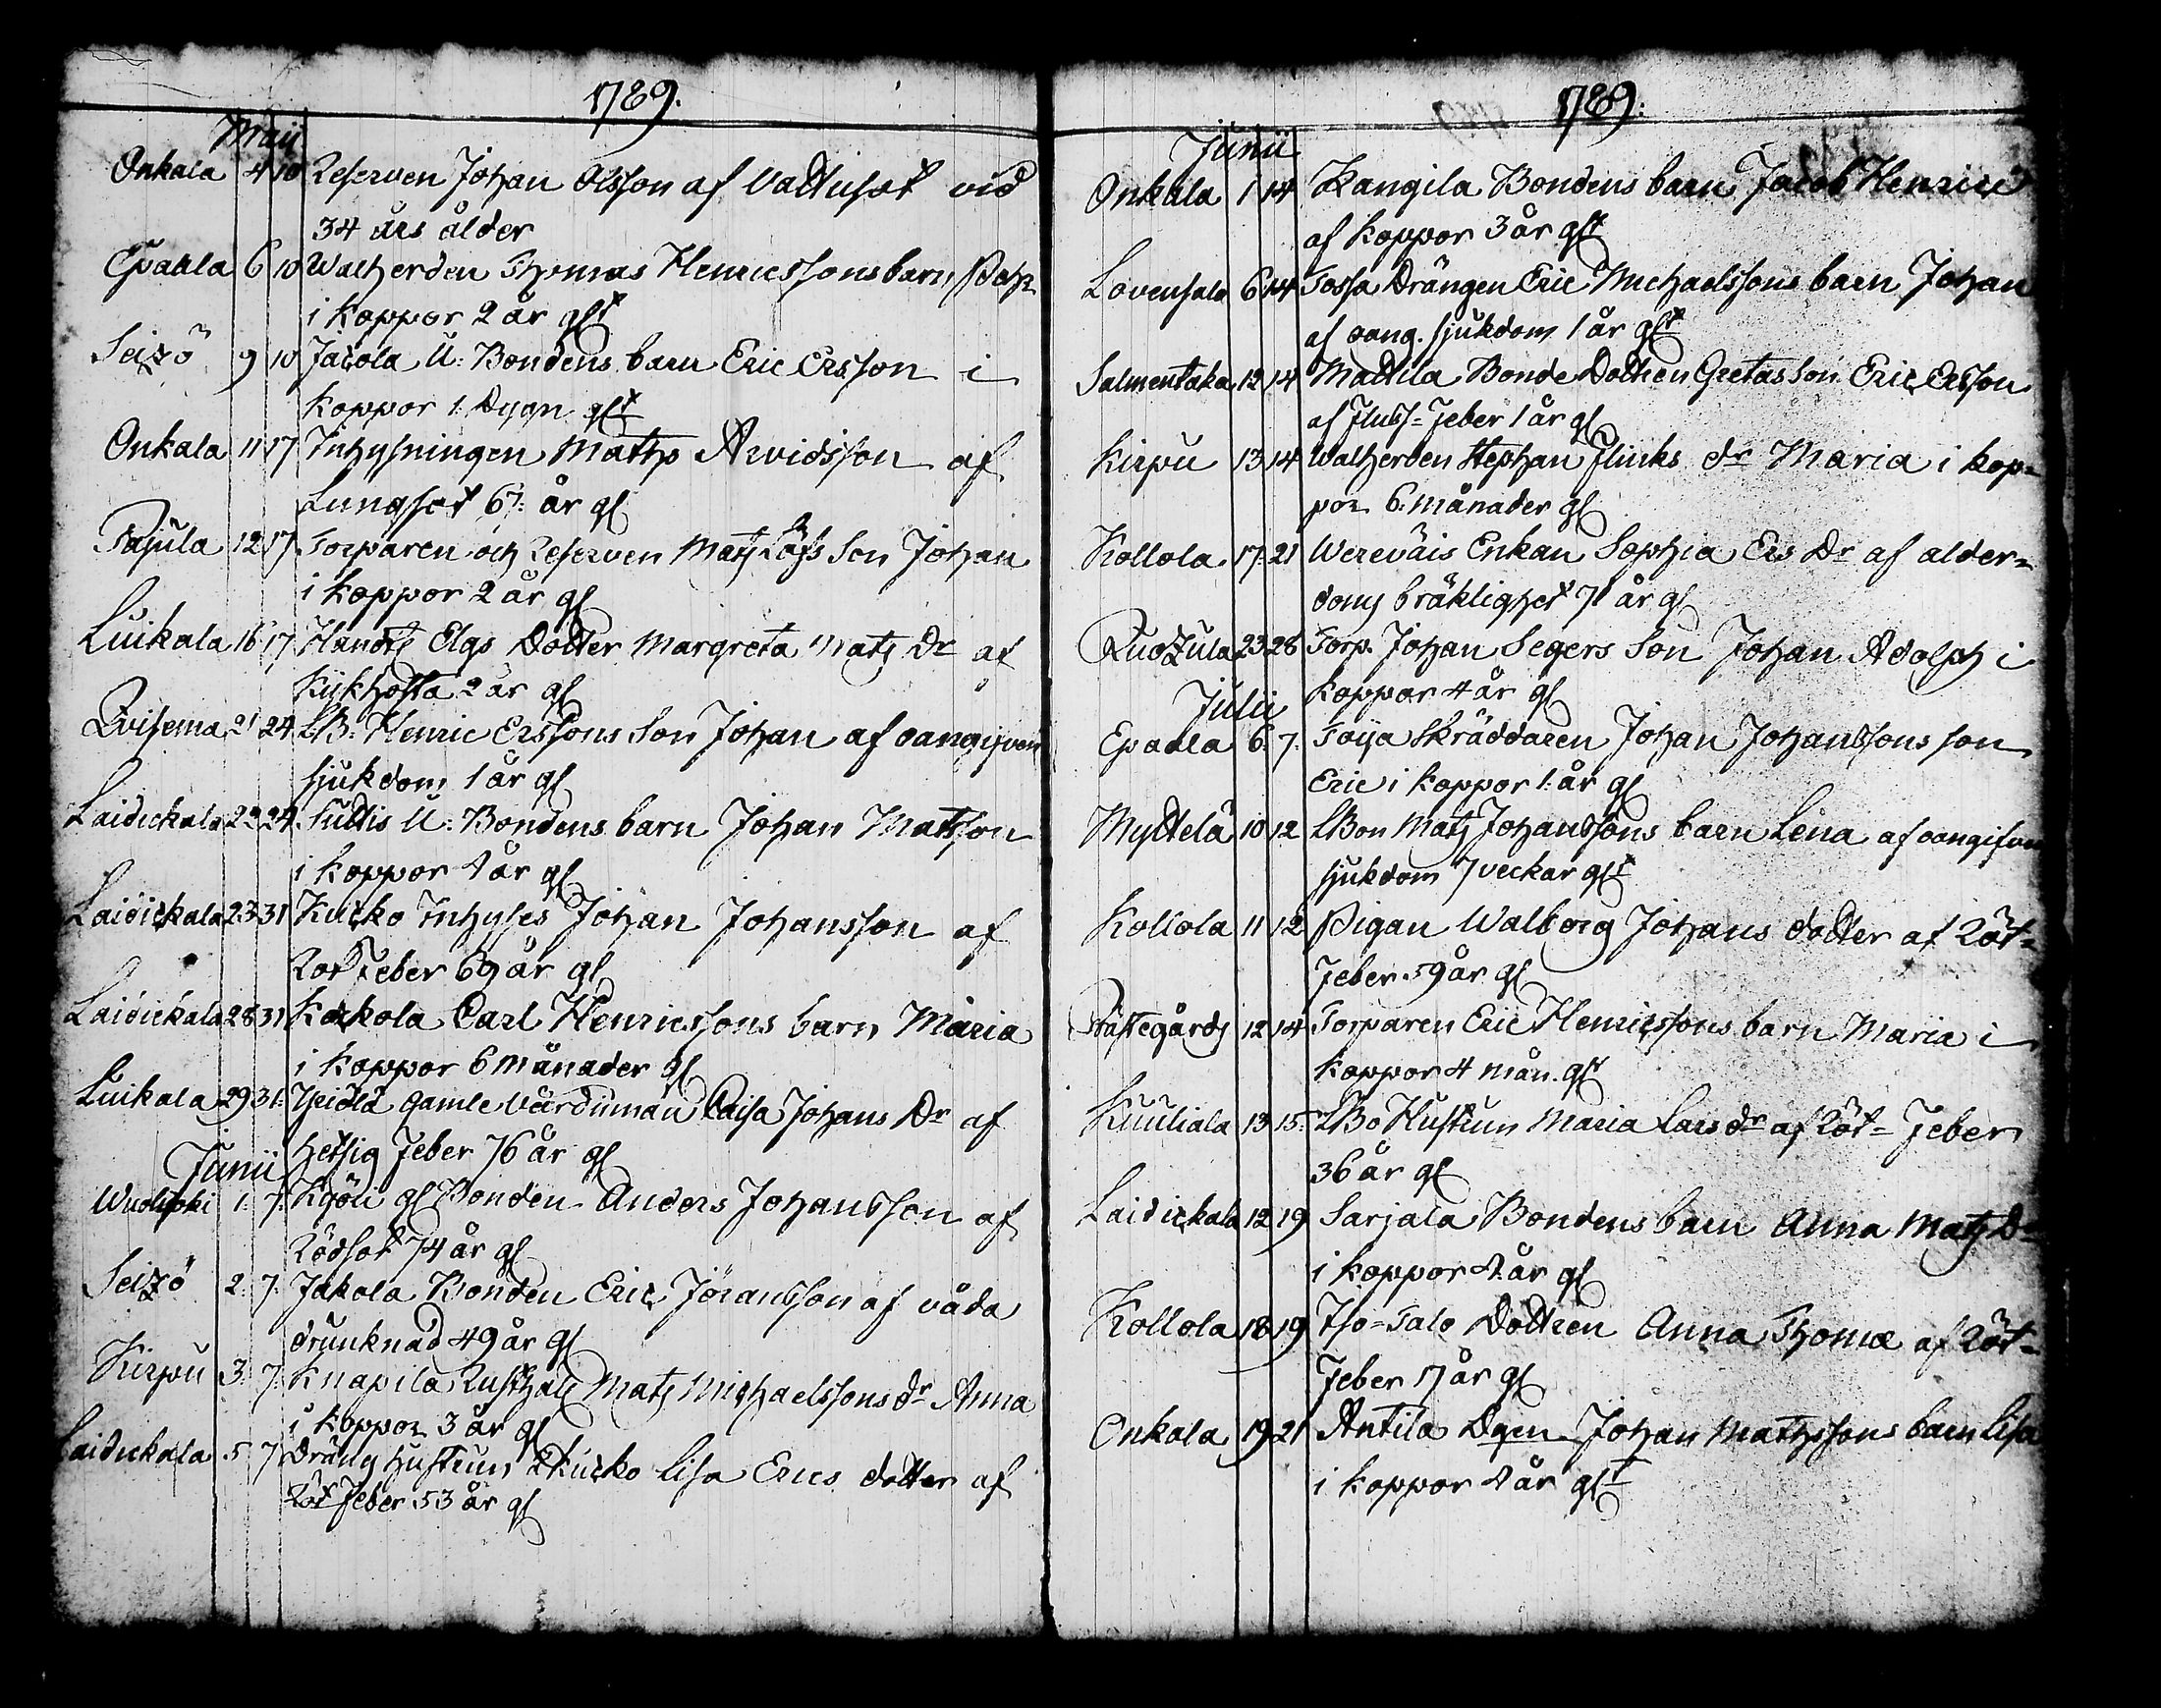 1789.
Maii
Onkala 4 10 Reserven Johan Olsson af Vattusot vid
34 års ålder
Epaala 6 10 Walherden Thomas Henricssons barn Pehr
i koppor 2 år glt
Seizö 9 10 Jacola U: Bondens barn Eric Ersson i
koppor 1. Dygn glt
Onkala 11 17 Inhysningen Maths Arvidsson af
Lungsot 67: år gl
Pajula 12 17 Torparen och Reserven Mats Löfs Son Johan
i koppor 2 år gl
Luikala 16 17 Handtl Elgs Dotter Margreta Mats Dr af
Kikhosta 2 år gl
Qvisema 21 24 LB. Henric Erssons Son Johan af oangifven
sjukdom 1 år gl
Laidickala 22 24 Suttis U: Bondens barn Johan Matsson
i koppor 1 år gl
Laidickala 23 31 Kucko Inhyses Johan Johansson af
Röt Feber 69 år gl
Laidickala 28 31 Kokola Carl Henricssons barn Maria
i koppor 6 månader gl
Luikala 29 31. gamle värdinnan Caisa Johans Dr af
hetsig Feber 76 år gl
Junii
1. 7. Kyöli gl Bonden Anders Johansson af
Rödsot 74 år gl
Seizö 2. 7. Jakola Bonden Eric Jöransson af våda
drunknad 49 år gl
Kirpu 3. 7. Knapila Rusthåll Mats Michaelssons dr Anna
i koppor 3 år gl
Laidickala 5 7 Dräng hustrun Kucko Lisa Erics dotter af
Röt Feber 53 år gl
1789.
Junii
Onkala 1 14 Kangila Bondens barn Jacob Henrici
af koppor 3 år glt
Lovensala 6 14 Tossa Drängen Eric Michaelssons barn Johan
af oang. sjukdom 1 år glt
Salmentaka 12 14 Mattila Bonde Dottren Gretas Son Eric Ersson
af Fluss-Feber 1 år gl
Kirpu 13 14 Walherden Stephan Flinks dr Maria i kop-
por 6. månader gl
Kollola 17. 21 Wereväis Enkan Sophia Ers Dr af alder-
doms bräklighet 71 år gl
Ruozula 23 28 Torp. Johan Segers Son Johan Adolph i
koppor 4 år gl
Julii
Epaala 6. 7. Toija Skräddaren Johan Johanssons son
Eric i koppor 1. år gl
Myttelä 10 12 LBon Mats Johanssons barn Lena af oangifven
sjukdom 7 veckar glt
Kollola 11 12 Pigan Walborg Johans dotter af Röt-
Feber 59 år gl
Prästegårds 12 14 Torparen Eric Henricssons barn Maria i
koppor 4 mån. glt
Kuuliala 13 15. LBo Hustrun Maria Lars dr af Röt-Feber
36 år gl
Laidickala 12 19 Sarjala Bondens barn Anna Mats Dr
i koppor 1 år gl
Kollola 18 19 Iso-Talo Dottren Anna Thomæ af Röt-
Feber 17 år gl
Onkala 19 21 Antila Dgen Johan Mathssons barn Lisa
i koppor 1 år glt